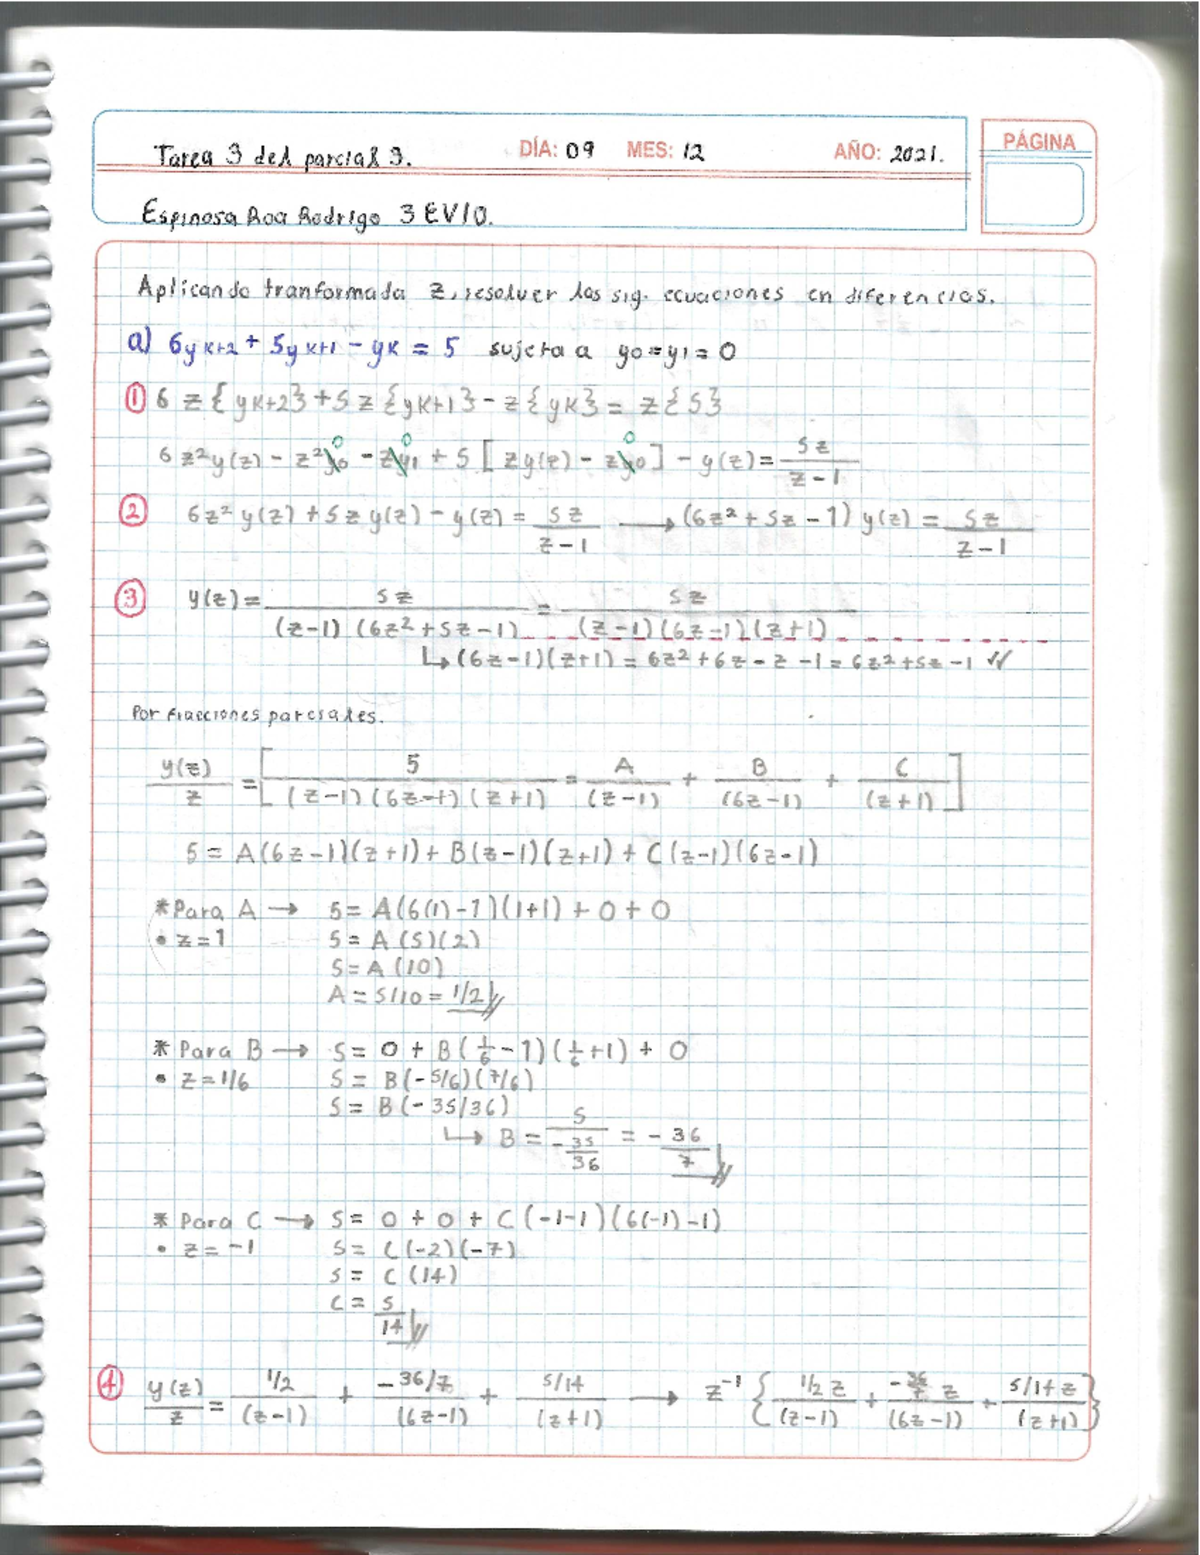 Tarea 3 del parcial 3. DÍA: 09 MES: 12 AÑO: 2021. PÁGINA
Espinosa Roa Rodrigo 3EV10.
Aplicando tranformada z, resolver las sig. ecuaciones en diferencias.
a) 6yk+2 + 5yk+1 - yk = 5 sujeta a y0=y1=0
① 6 z{yk+2}+5z{yk+1}-z{yk}= z{5}
6z²y(z) - z²y0 0 - zy1 0 + 5[zy(z) - zy0 0] - y(z) = 5z/z-1
② 6z²y(z)+5zy(z)-y(z) = 5z/z-1 → (6z²+5z-1)y(z) = 5z/z-1
③ y(z) = 5z/(z-1)(6z²+5z-1) = 5z/(z-1)(6z-1)(z+1)
↳(6z-1)(z+1) = 6z²+6z-z-1 = 6z²+5z-1 //
Por fracciones parciales.
y(z)/z = [5/(z-1)(6z-1)(z+1) = A/(z-1) + B/(6z-1) + C/(z+1)]
5 = A(6z-1)(z+1)+B(z-1)(z+1)+C(z-1)(6z-1)
*Para A → 5= A(6(1)-1)(1+1)+0+0
• z=1 5= A(5)(2)
5=A(10)
A=5/10=1/2//
* Para B → 5= 0 + B(1/6-1)(1/6+1) + 0
• z=1/6 5= B(-5/6)(7/6)
5= B(-35/36)
↳ B = 5/-35/36 = -36/7//
* Para C → 5= 0 + 0 + C(-1-1)(6(-1)-1)
• z=-1 5= C(-2)(-7)
5= C(14)
C= 5/14//
④ y(z)/z = 1/2/(z-1) + -36/7/(6z-1) + 5/14/(z+1) → z⁻¹{1/2 z/(z-1) + -36/7 z/(6z-1) + 5/14 z/(z+1)}